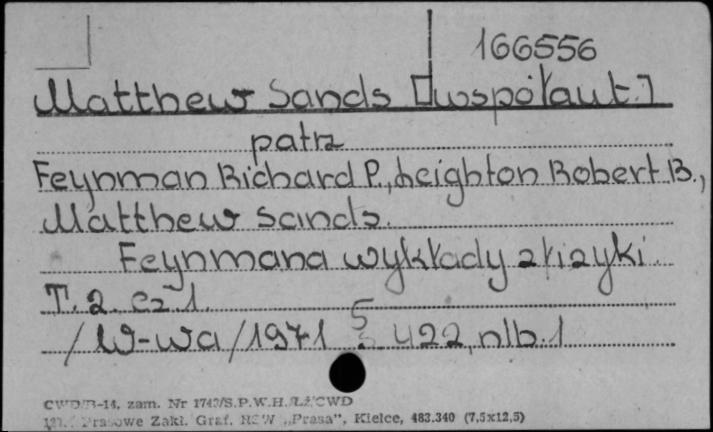 166556
Matthew Sands [współaut.]
patrz
Feynman Richard P., Leighton Robert B.,
Matthew Sands.
Feynmana wykłady z fizyki.
T. 2. cz 1.
/W-wa/1971 S 422, nlb. 1
CWD/B-14, zam. Nr 1743/S.P.W.H./Ł/CWD
Prasowe Zakł. Graf. RSW „Prasa”, Kielce, 483.340 (7,5x12,5)